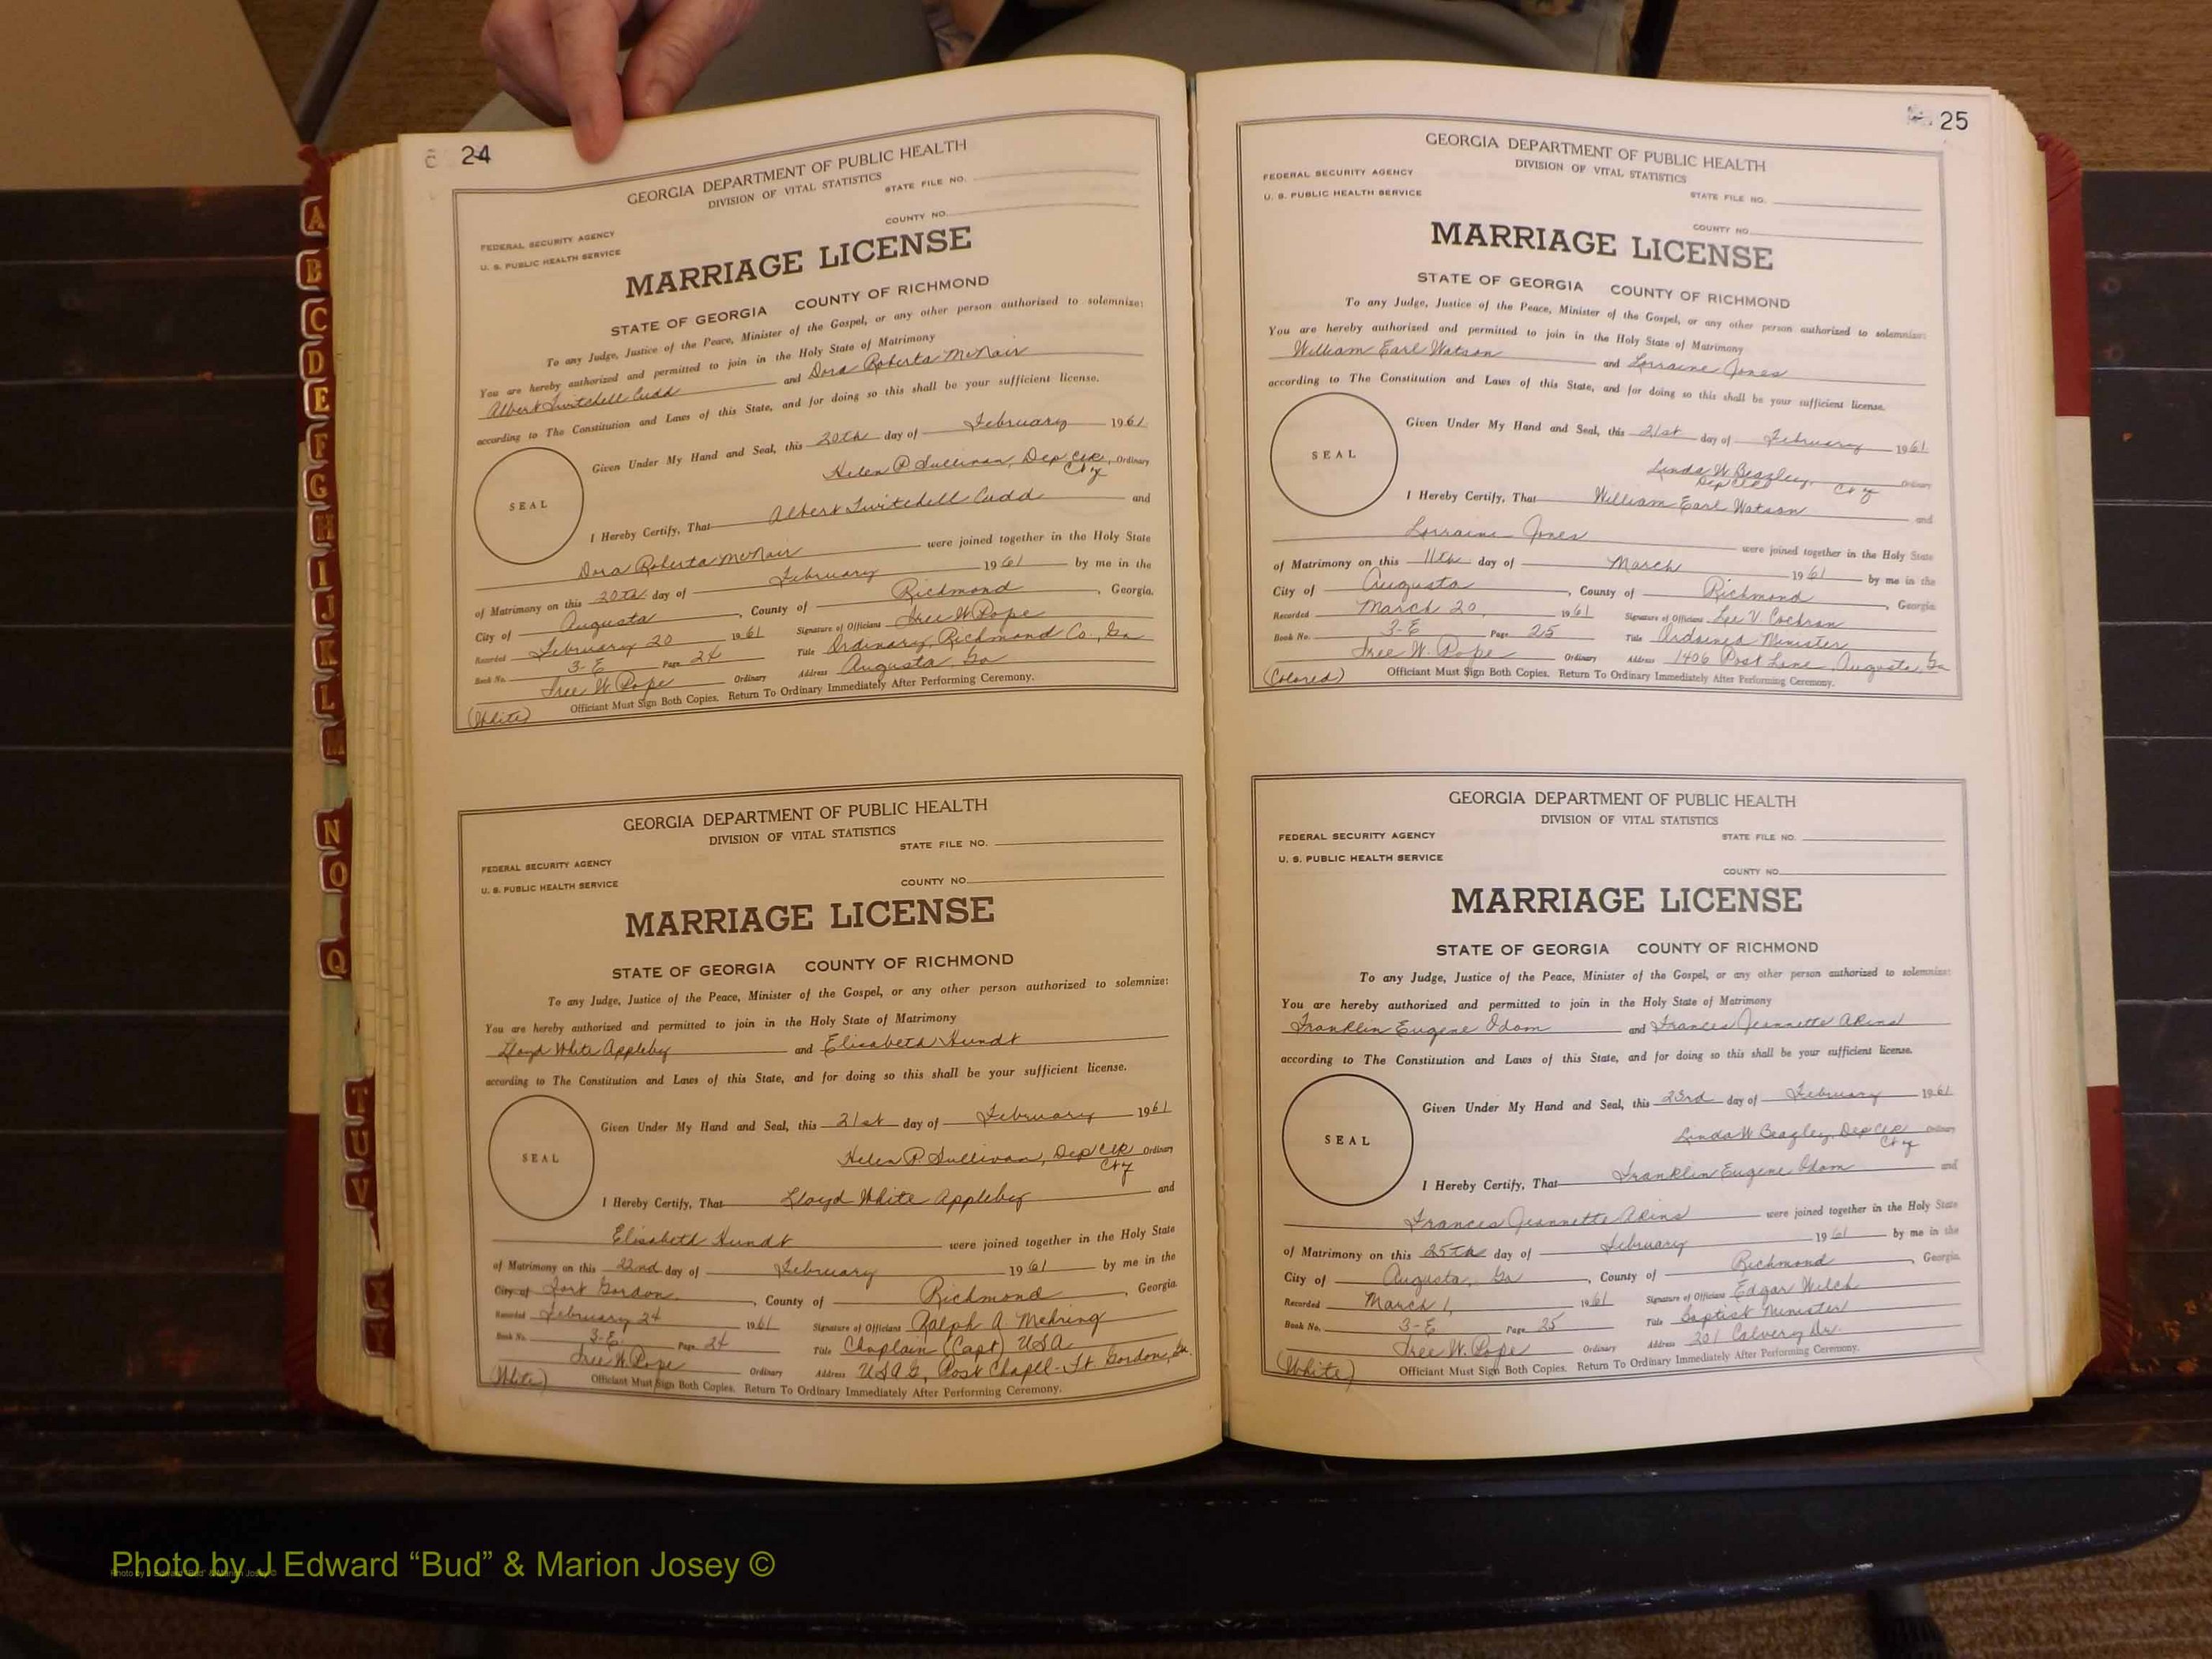 A
B
C
D
E
F
G
H
I
J
K
L
M
N
O
Q
T
U
V
24
GEORGIA DEPARTMENT OF PUBLIC HEALTH
DIVISION OF VITAL STATISTICS
STATE FILE NO.
FEDERAL SECURITY AGENCY
COUNTY NO.
U. S. PUBLIC HEALTH SERVICE
MARRIAGE LICENSE
STATE OF GEORGIA COUNTY OF RICHMOND
To any Judge, Justice of the Peace, Minister of the Gospel, or any other person authorized to solemnize:
You are hereby authorized and permitted to join in the Holy State of Matrimony
Albert Twitchell Cudd and Dora Roberta McNair
according to The Constitution and Laws of this State, and for doing so this shall be your sufficient license.
Given Under My Hand and Seal, this 20th day of February 1961
Helen P. Sullivan, Dep Clk, Ordinary
Cty
SEAL
I Hereby Certify, That Albert Twitchell Cudd and
Dora Roberta McNair were joined together in the Holy State
of Matrimony on this 20th day of February 1961 by me in the
City of Augusta, County of Richmond, Georgia.
Recorded February 20 1961 Signature of Officiant Tree W. Pope
Book No. 3-E Page 24 Title Ordinary, Richmond Co., Ga
Tree W. Pope Ordinary Address Augusta, Ga
(White) Officiant Must Sign Both Copies. Return To Ordinary Immediately After Performing Ceremony.
GEORGIA DEPARTMENT OF PUBLIC HEALTH
DIVISION OF VITAL STATISTICS
STATE FILE NO.
FEDERAL SECURITY AGENCY
COUNTY NO.
U. S. PUBLIC HEALTH SERVICE
MARRIAGE LICENSE
STATE OF GEORGIA COUNTY OF RICHMOND
To any Judge, Justice of the Peace, Minister of the Gospel, or any other person authorized to solemnize:
You are hereby authorized and permitted to join in the Holy State of Matrimony
Lloyd White Appleby and Elisabeth Hundt
according to The Constitution and Laws of this State, and for doing so this shall be your sufficient license.
Given Under My Hand and Seal, this 21st day of February 1961
Helen P. Sullivan, Dep Clk Ordinary
Cty
SEAL
I Hereby Certify, That Lloyd White Appleby and
Elisabeth Hundt were joined together in the Holy State
of Matrimony on this 22nd day of February 1961 by me in the
City of Fort Gordon, County of Richmond, Georgia.
Recorded February 24 1961 Signature of Officiant Ralph A Mehring
Book No. 3-E Page 24 Title Chaplain (Capt) USA
Tree W. Pope Ordinary Address USAG, Post Chapel-Ft. Gordon, Ga.
(White) Officiant Must Sign Both Copies. Return To Ordinary Immediately After Performing Ceremony.
25
GEORGIA DEPARTMENT OF PUBLIC HEALTH
DIVISION OF VITAL STATISTICS
FEDERAL SECURITY AGENCY
U. S. PUBLIC HEALTH SERVICE
STATE FILE NO.
COUNTY NO.
MARRIAGE LICENSE
STATE OF GEORGIA COUNTY OF RICHMOND
To any Judge, Justice of the Peace, Minister of the Gospel, or any other person authorized to solemnize:
You are hereby authorized and permitted to join in the Holy State of Matrimony
William Earl Watson and Lorraine Jones
according to The Constitution and Laws of this State, and for doing so this shall be your sufficient license.
Given Under My Hand and Seal, this 21st day of February 1961
Linda W. Beazley, Ordinary
Dep Clk Cty
SEAL
I Hereby Certify, That William Earl Watson and
Lorraine Jones were joined together in the Holy State
of Matrimony on this 11th day of March 1961 by me in the
City of Augusta, County of Richmond, Georgia
Recorded March 20, 1961 Signature of Officiant Lee V. Cochran
Book No. 3-E Page 25 Title Ordained Minister
Tree W. Pope Ordinary Address 1406 Post Lane, Augusta, Ga
(Colored) Officiant Must Sign Both Copies. Return To Ordinary Immediately After Performing Ceremony.
GEORGIA DEPARTMENT OF PUBLIC HEALTH
DIVISION OF VITAL STATISTICS
FEDERAL SECURITY AGENCY
STATE FILE NO.
U. S. PUBLIC HEALTH SERVICE
COUNTY NO.
MARRIAGE LICENSE
STATE OF GEORGIA COUNTY OF RICHMOND
To any Judge, Justice of the Peace, Minister of the Gospel, or any other person authorized to solemnize:
You are hereby authorized and permitted to join in the Holy State of Matrimony
Franklin Eugene Odom and Frances Jeannette Akins
according to The Constitution and Laws of this State, and for doing so this shall be your sufficient license.
Given Under My Hand and Seal, this 23rd day of February 1961
Linda W. Beazley, Dep Clk Ordinary
Cty
SEAL
I Hereby Certify, That Franklin Eugene Odom and
Frances Jeannette Akins were joined together in the Holy State
of Matrimony on this 25th day of February 1961 by me in the
City of Augusta, Ga, County of Richmond, Georgia.
Recorded March 1, 1961 Signature of Officiant Edgar Welch
Book No. 3-E Page 25 Title Baptist Minister
Tree W. Pope Ordinary Address 201 Calvery Dr.
(White) Officiant Must Sign Both Copies. Return To Ordinary Immediately After Performing Ceremony.
Photo by J Edward “Bud” & Marion Josey ©
Photo by J Edward “Bud” & Marion Josey ©